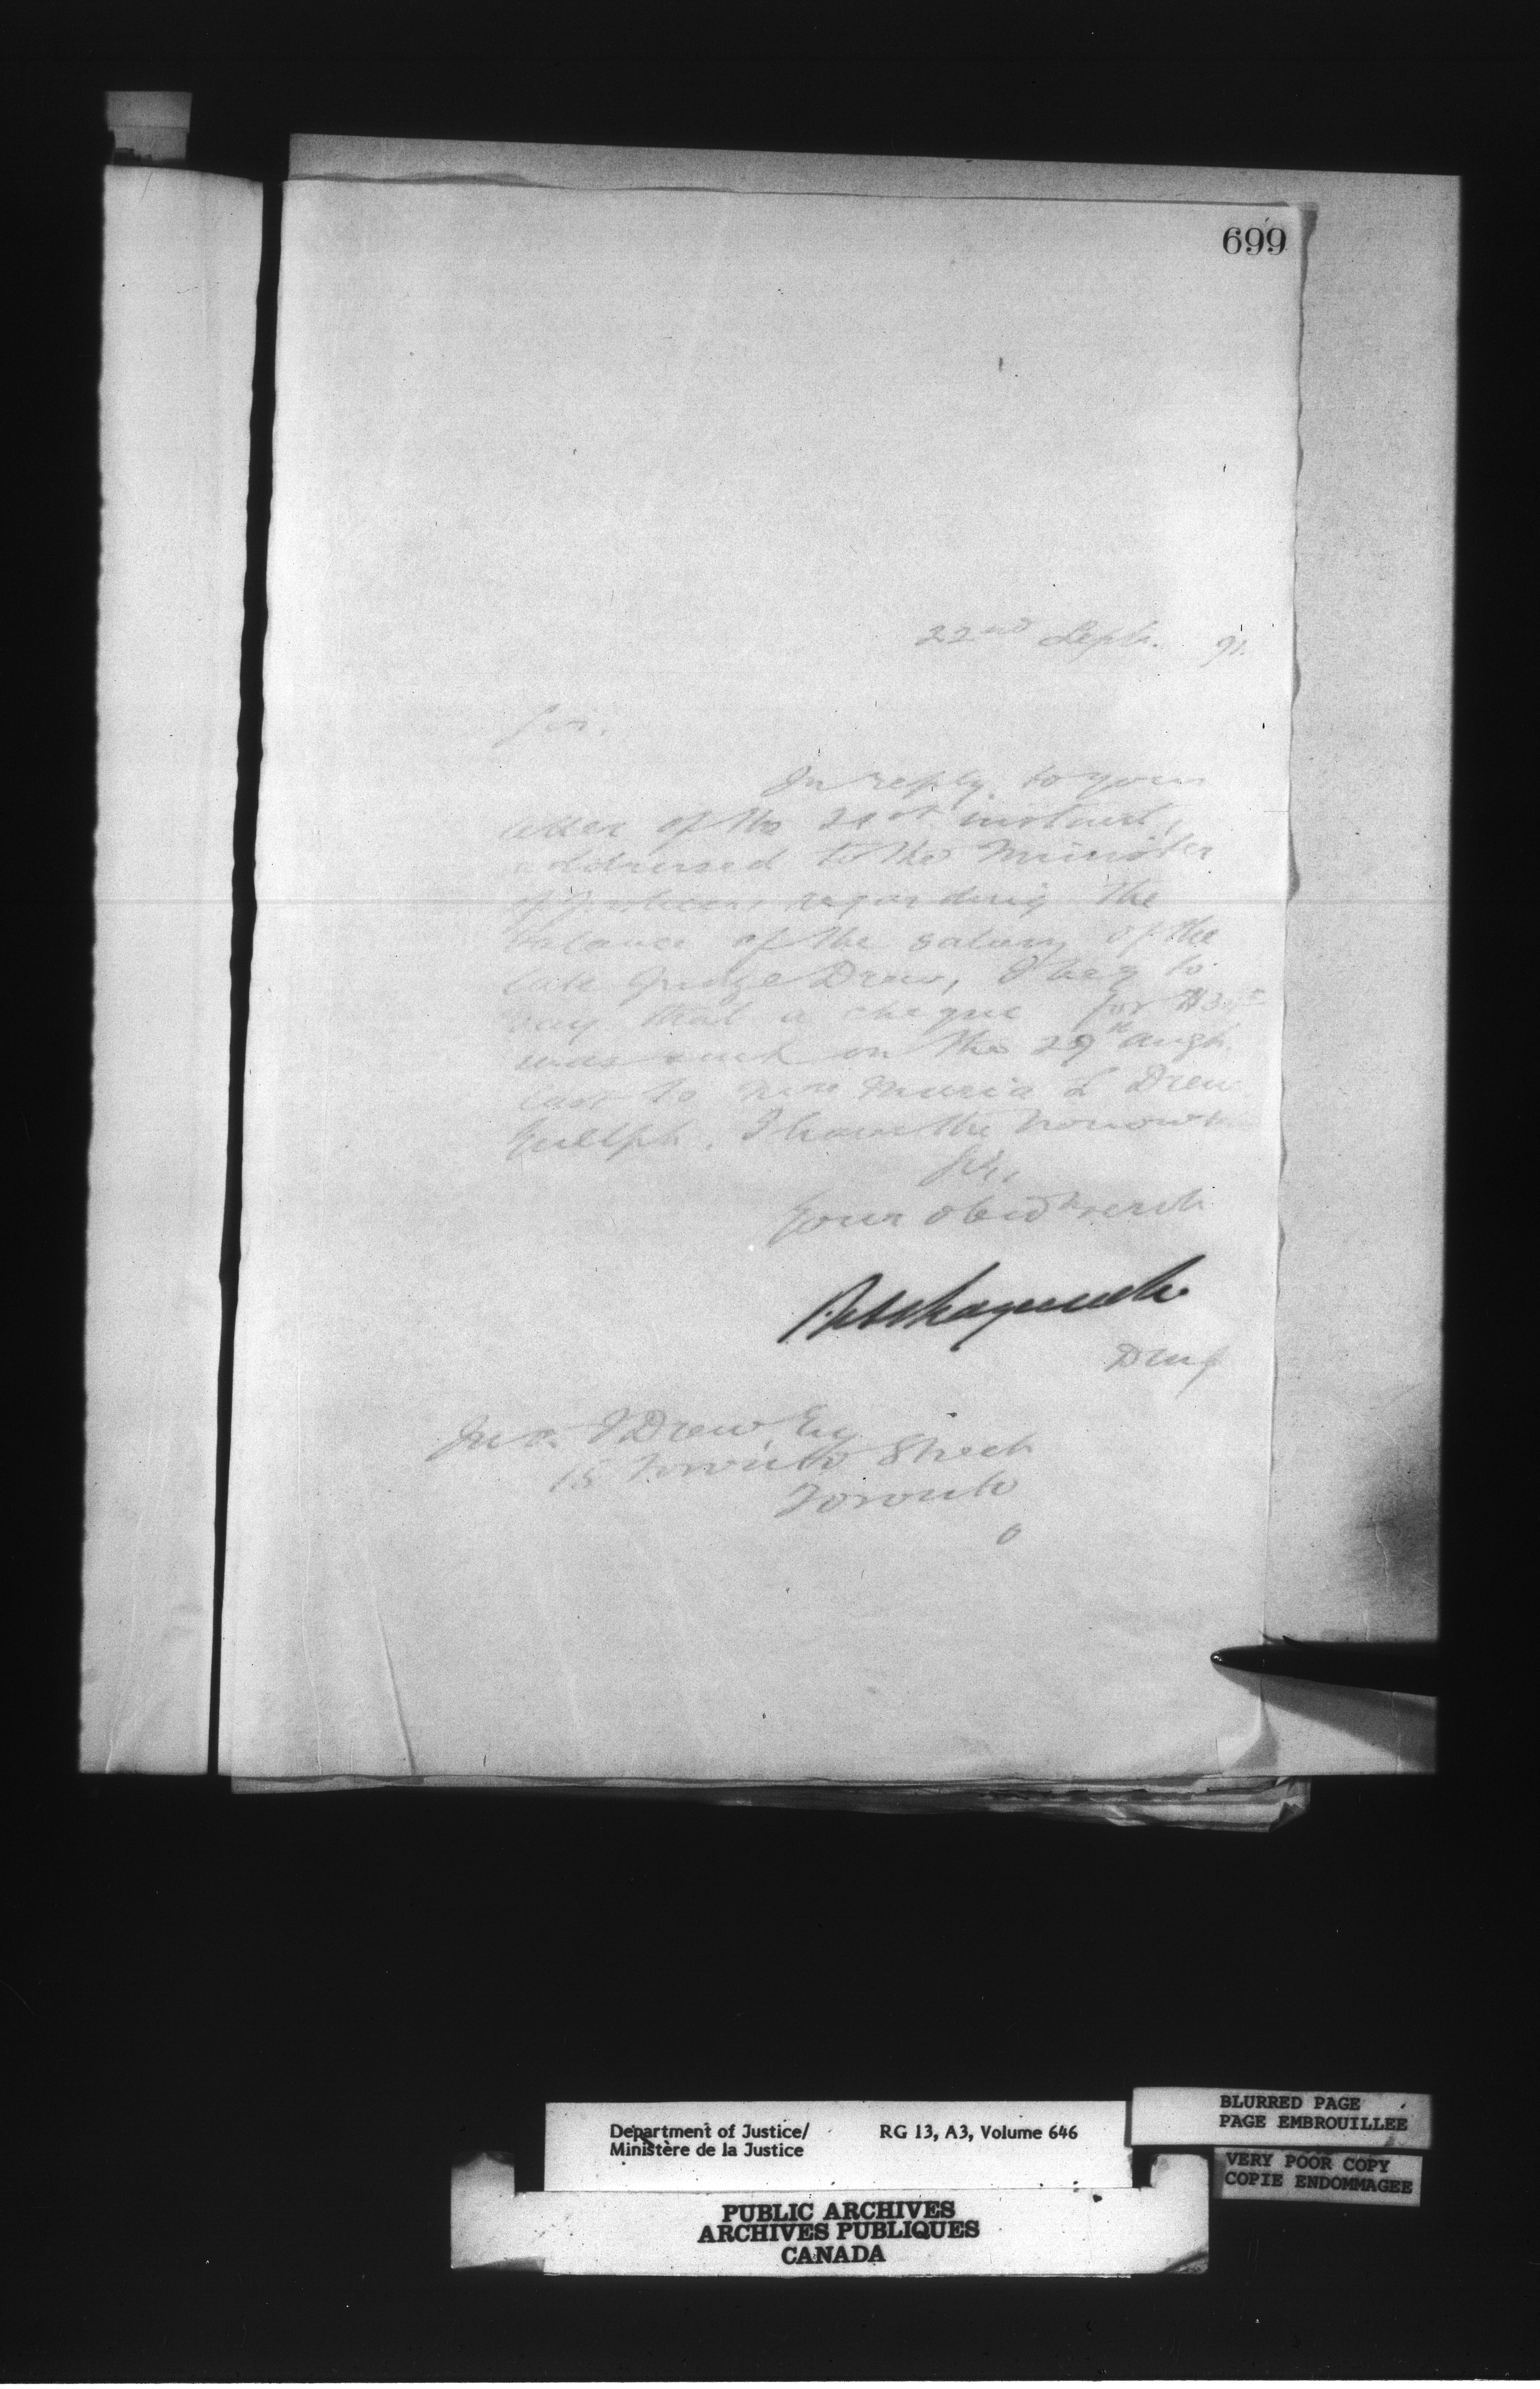 699
22nd Sept. 91.
Sir,
In reply to your
letter of the 21st instant,
addressed to the Minister
of Justice, regarding the
balance of the salary of the
late Judge Drew, I beg to
say that a cheque for
was sent on the 29th Augt.
last to Mrs Maria L Drew
Guelph. I have the honour
Sir,
Your obedt servt
Jno. J Drew Esq
15 Toronto Street
Toronto
Department of Justice/ RG 13, A3, Volume 646
Ministère de la Justice
BLURRED PAGE
PAGE EMBROUILLEE
VERY POOR COPY
COPIE ENDOMMAGEE
PUBLIC ARCHIVES
ARCHIVES PUBLIQUES
CANADA